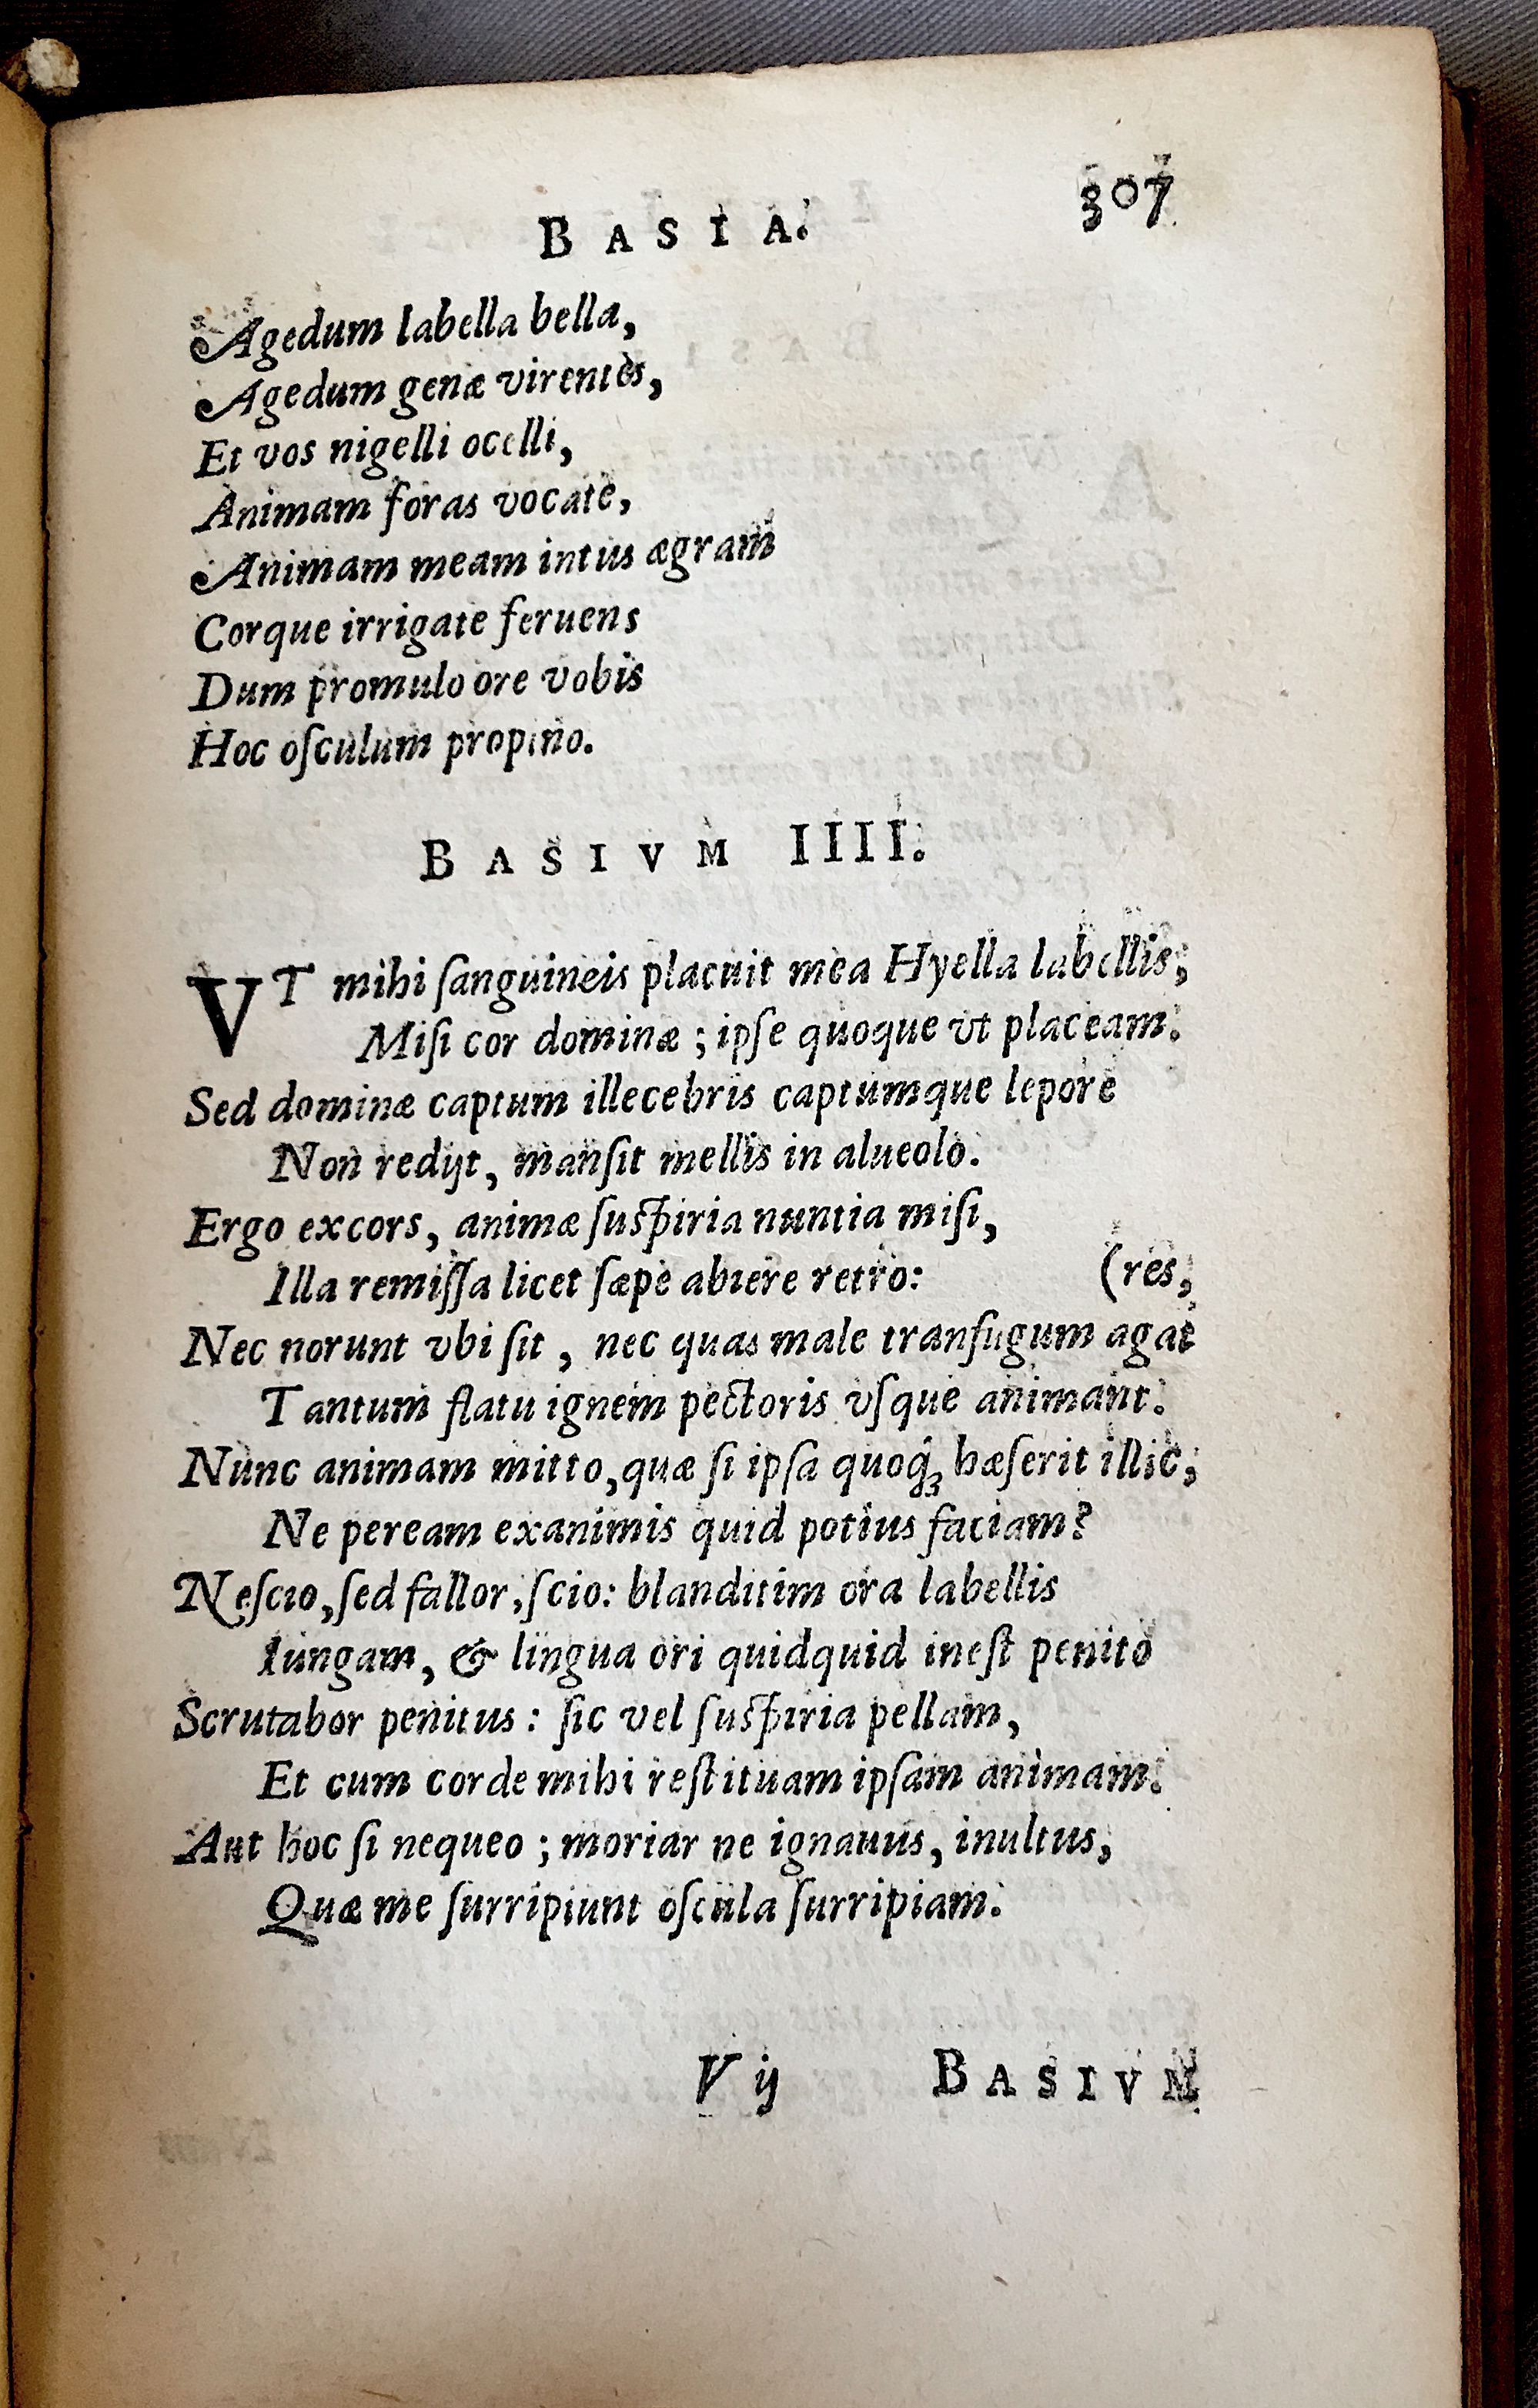 BASIA. 307
Agedum labella bella,
Agedum genæ virentes,
Et vos nigelli ocelli,
Animam foras vocate,
Animam meam intus ægram
Corque irrigate feruens
Dum promulo ore vobis
Hoc oſculum propino.
BASIVM IIII.
VT mihi ſanguineis placuit mea Hyella labellis;
Miſi cor dominæ; ipſe quoque vt placeam.
Sed dominæ captum illecebris captumque lepore
Non redijt, manſit mellis in alueolo.
Ergo excors, animæ ſuſpiria nuntia miſi,
Illa remiſſa licet ſæpe abiere retro: (res,
Nec norunt vbi ſit, nec quas male tranſfugum agat
Tantum flatu ignem pectoris vſque animant.
Nunc animam mitto, quæ ſi ipſa quoqꝫ hæſerit illic,
Ne peream exanimis quid potius faciam?
Neſcio, ſed fallor, ſcio: blanditim ora labellis
Iungam, & lingua ori quidquid ineſt penito
Scrutabor penitus: ſic vel ſuſpiria pellam,
Et cum corde mihi reſtituam ipſam animam.
Aut hoc ſi nequeo; moriar ne ignauus, inultus,
Quæ me ſurripiunt oſcula ſurripiam.
V ij BASIVM